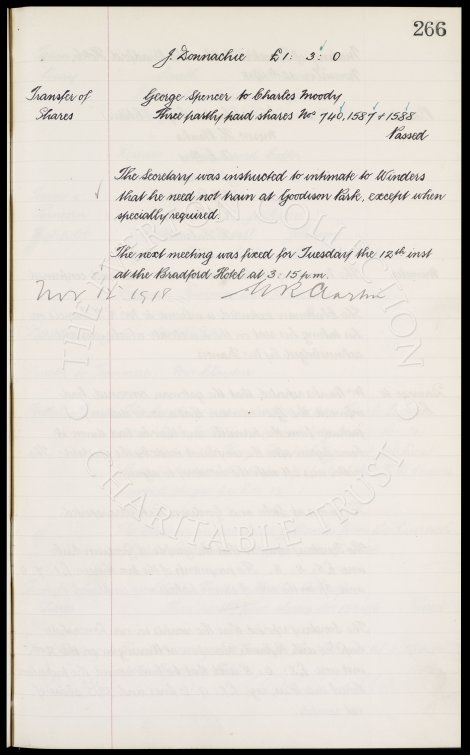 266
J. Donnachie £1: 3: 0
Transfer of Shares
George Spencer to Charles Moody
Three partly paid shares Nos 740, 1587 + 1588
Passed
The Secretary was instructed to intimate to Winders
that he need not train at Goodison Park, except when
specially required.
The next meeting was fixed for Tuesday the 12th inst
at the Bradford Hotel at 3:15 p.m.
Nov 12 1918
THE EVERTON COLLECTION
CHARITABLE TRUST